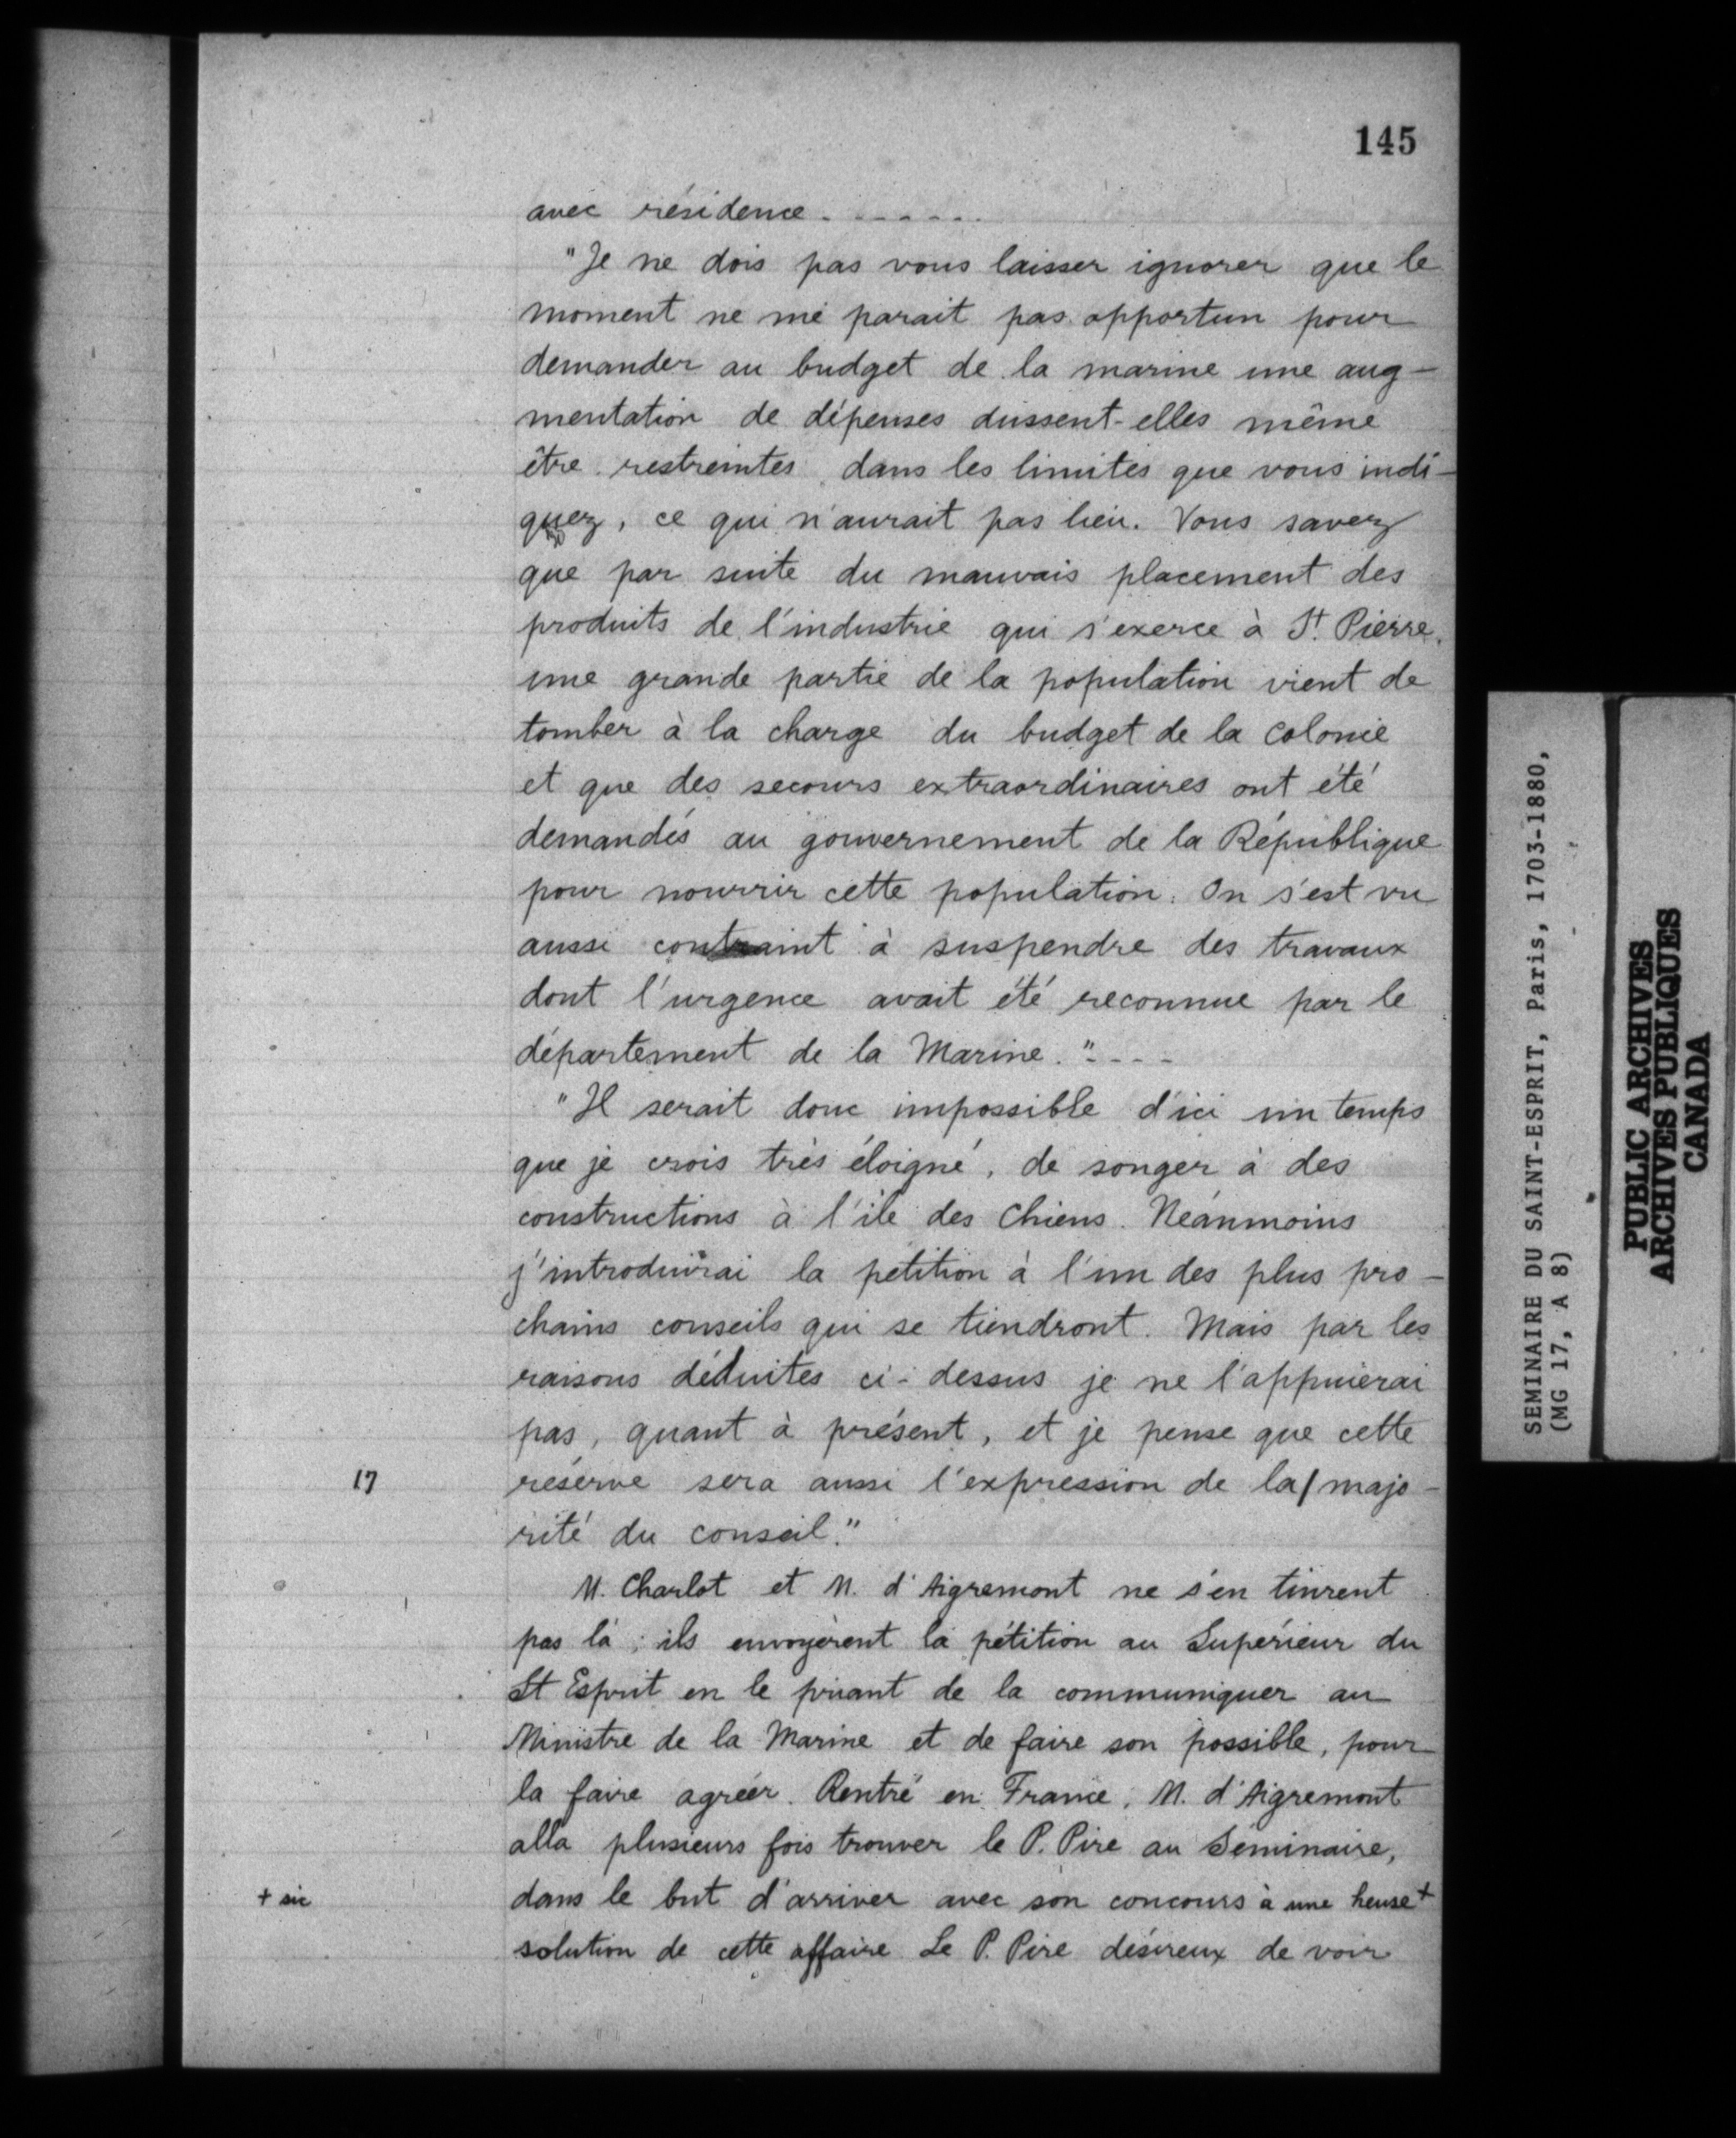 145
avec résidence . - - - - - .
"Je ne dois pas vous laisser ignorer que le
moment ne me parait pas opportun pour
demander au budget de la marine une aug-
mentation de dépenses dussent-elles même
être restreintes dans les limites que vous indi-
quez, ce qui n'aurait pas lieu. Vous savez
que par suite du mauvais placement des
produits de l'industrie qui s'exerce à St. Pierre,
une grande partie de la population vient de
tomber à la charge du budget de la colonie
et que des secours extraordinaires ont été
demandés au gouvernement de la République
pour nourrir cette population. On s'est vu
aussi contraint à suspendre des travaux
dont l'urgence avait été reconnue par le
département de la Marine." - - -
"Il serait donc impossible d'ici un temps
que je crois très éloigné, de songer à des
constructions à l'ile des Chiens. Néanmoins
j'introduirai la petition à l'un des plus pro-
chains conseils qui se tiendront. Mais par les
raisons déduites ci-dessus je ne l'appuierai
pas, quant à présent, et je pense que cette
17 réserve sera aussi l'expression de la/majo-
rité du conseil."
M. Charlot et M. d'Aigremont ne s'en tinrent
pas là; ils envoyèrent la pétition au Supérieur du
St Esprit en le priant de la communiquer au
Ministre de la Marine et de faire son possible, pour
la faire agréer. Rentré en France, M. d'Aigremont
alla plusieurs fois trouver le P. Pire au Séminaire,
+ sic dans le but d'arriver avec son concours à une heuse+
solution de cette affaire Le P. Pire désireux de voir
SEMINAIRE DU SAINT-ESPRIT, Paris, 1703-1880,
(MG 17, A 8)
PUBLIC ARCHIVES
ARCHIVES PUBLIQUES
CANADA